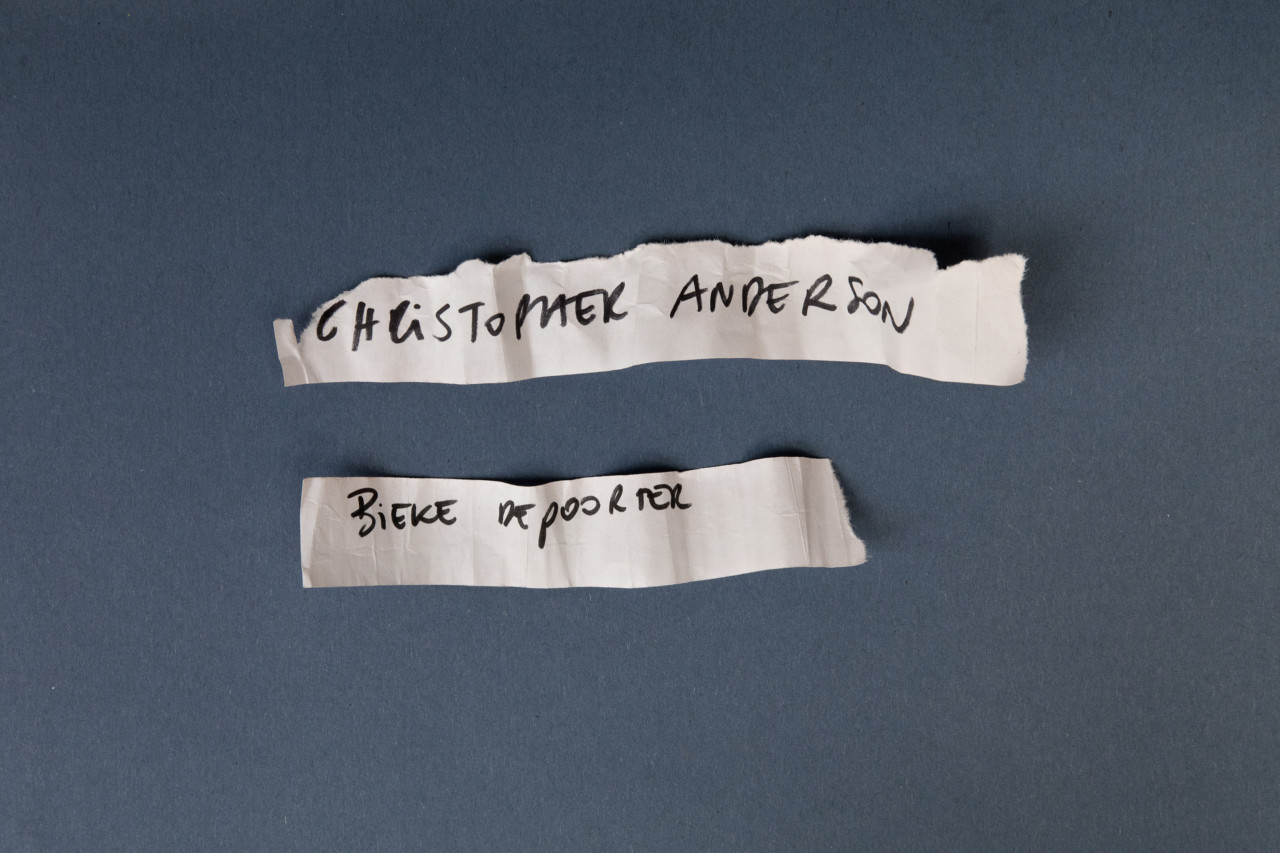 CHRiSTOPHER ANDERSON
BiEKE DEpOORTER